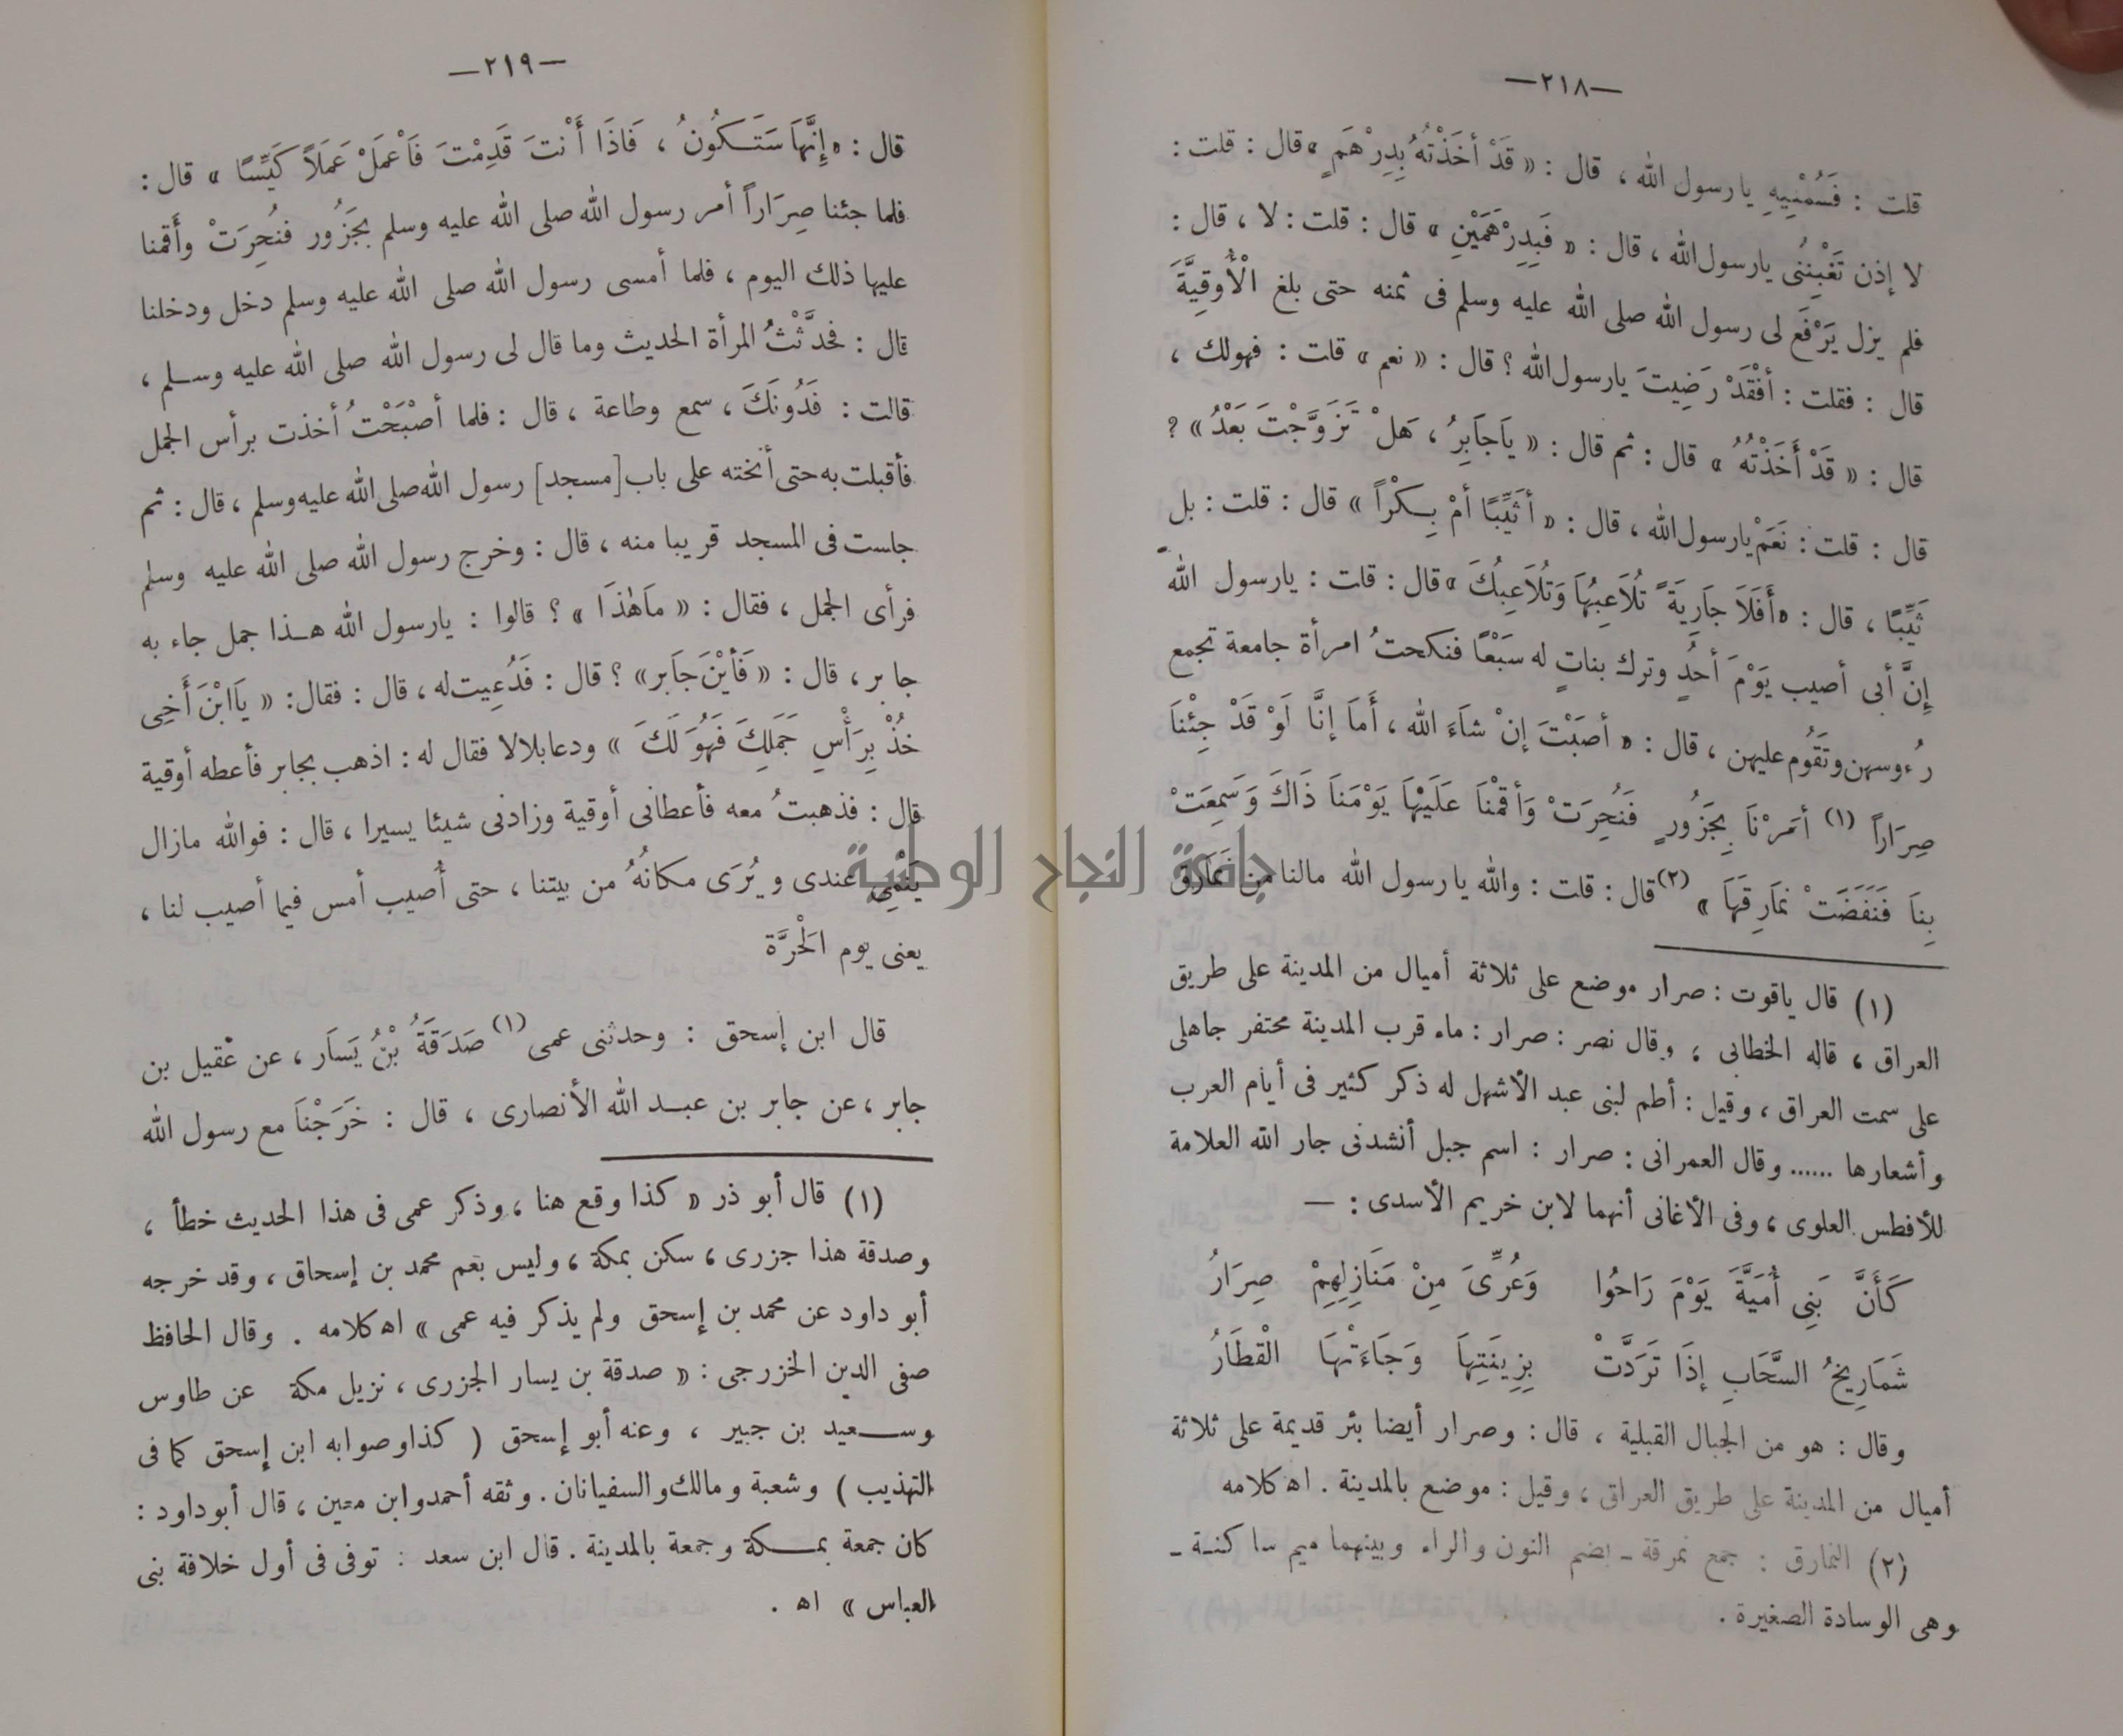 —٢١٨—
قلت : فَسُمْنِيهِ يا رسول الله ، قال : « قَدْ أَخَذْتُهُ بِدِرْهَمٍ » قال : قلت :
لا إذن تَغْبِنُنِى يارسول الله ، قال : « فَبِدِرْهَمَيْنِ » قال : قلت : لا ، قال :
فلم يزل يَرْفَع لى رسول الله صلى الله عليه وسلم فى ثمنه حتى بلغ الْأُوقِيَّةَ
قال : فقلت : أَفْقَدْ رَضِيتَ يارسول الله ؟ قال : « نعم » قلت : فهولك ،
قال : « قَدْ أَخَذْتُهُ » قال : ثم قال : « يَاجَابِرُ ، هَلْ تَزَوَّجْتَ بَعْدُ » ؟
قال : قلت : نَعَمْ يارسول الله ، قال : « أَثَيِّبًا أَمْ بِكْراً » قال : قلت : بل
ثَيِّبًا ، قال : « أَفَلاَ جَارِيَةً تُلاَعِبُهَا وَتُلاَعِبُكَ » قال : قلت : يارسول الله
إِنَّ أبى أصيب يَوْمَ أحُدٍ وترك بناتٍ له سَبْعًا فنكحتُ امرأة جامعة تجمع
رُءوسهن وتَقُوم عليهن ، قال : « أَصَبْتَ إِنْ شَاءَ الله ، أَمَا إِنَّا لَوْ قَدْ جِئْنَا
صِرَاراً (١) أَمَرْنَا بِجَزُورٍ فَنُحِرَتْ وَأَقَمْنَا عَلَيْهَا يَوْمَنَا ذَاكَ وَسَمِعَتْ
بِنَا فَنَفَضَتْ نَمَارِقَهَا » (٢) قال : قلت : والله يا رسول الله مالنا من نَمَارِقَ
(١) قال ياقوت : صرار موضع على ثلاثة أميال من المدينة على طريق
العراق ، قاله الخطابى ، وقال نصر : صرار : ماء قرب المدينة محتفر جاهلى
على سمت العراق ، وقيل : أطم لبنى عبد الأشهل له ذكر كثير فى أيام العرب
وأشعارها ...... وقال العمرانى : صرار : اسم جبل أنشدنى جار الله العلامة
للأفطس العلوى ، وفى الأغانى أنهما لابن خريم الأسدى : —
كَأَنَّ بَنِى أُمَيَّةَ يَوْمَ رَاحُوا وَعُرِّىَ مِنْ مَنَازِلِهِمْ صِرَارُ
شَمَارِيخُ السَّحَابِ إِذَا تَرَدَّتْ بِزِينَتِهَا وَجَاءَتْهَا الْقَطَارُ
وقال : هو من الجبال القبلية ، قال : وصرار أيضا بئر قديمة على ثلاثة
أميال من المدينة على طريق العراق ، وقيل : موضع بالمدينة . اه كلامه
(٢) النمارق : جمع نمرقة ـ بضم النون والراء وبينهما ميم ساكنة ـ
وهى الوسادة الصغيرة .
—٢١٩—
قال : « إِنَّهَا سَتَكُونُ ، فَاذَا أَنْتَ قَدِمْتَ فَاعْمَلْ عَمَلاً كَيِّسًا » قال :
فلما جئنا صِرَاراً أمر رسول الله صلى الله عليه وسلم بِجَزُور فنُحِرَتْ وأَقمنا
عليها ذلك اليوم ، فلما أمسى رسول الله صلى الله عليه وسلم دخل ودخلنا
قال : فحدَّثْتُ المرأة الحديث وما قال لى رسول الله صلى الله عليه وسلم ،
قالت : فَدُونَكَ ، سمع وطاعة ، قال : فلما أصْبَحْتُ أخذت برأس الجمل
فأقبلت به حتى أنخته على باب [مسجد] رسول الله صلى الله عليه وسلم ، قال : ثم
جلست فى المسجد قريبا منه ، قال : وخرج رسول الله صلى الله عليه وسلم
فرأى الجمل ، فقال : « مَاهٰذَا » ؟ قالوا : يارسول الله هذا جمل جاء به
جابر ، قال : « فَأَيْنَ جَابر » ؟ قال : فَدُعِيت له ، قال : فقال : « يَاابْنَ أَخِى
خُذْ بِرَأْسِ جَمَلِكَ فَهُوَ لَكَ » ودعا بلالا فقال له : اذهب بجابر فأعطه أوقية
قال : فذهبتُ معه فأعطانى أوقية وزادنى شيئا يسيرا ، قال : فوالله مازال
يَنْمِى عندى ويُرَى مكانُهُ من بيتنا ، حتى أُصيب أمس فيما أصيب لنا ،
يعنى يوم الحَرَّة
قال ابن إسحق : وحدثنى عمى (١) صَدَقَةُ بْنُ يَسَار ، عن عَقيل بن
جابر ، عن جابر بن عبد الله الأنصارى ، قال : خَرَجْنَا مع رسول الله
(١) قال أبو ذر « كذا وقع هنا ، وذكر عمى فى هذا الحديث خطأ ،
وصدقة هذا جزرى ، سكن بمكة ، وليس بعم محمد بن إسحاق ، وقد خرجه
أبو داود عن محمد بن إسحق ولم يذكر فيه عمى » اه كلامه . وقال الحافظ
صفى الدين الخزرجى : « صدقة بن يسار الجزرى ، نزيل مكة عن طاوس
وسعيد بن جبير ، وعنه أبو إسحق ( كذا وصوابه ابن إسحق كما فى
التهذيب ) وشعبة ومالك والسفيانان . وثقه أحمد وابن معين ، قال أبو داود :
كان جمعة بمكة وجمعة بالمدينة . قال ابن سعد : توفى فى أول خلافة بنى
العباس » اه .
جامعة النجاح الوطنية